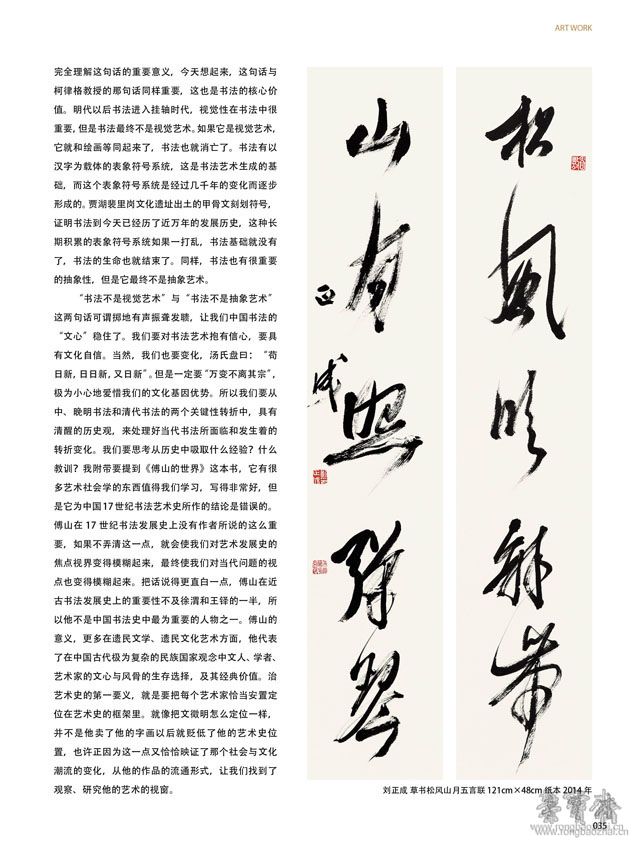 ART WORK
完全理解这句话的重要意义，今天想起来，这句话与
柯律格教授的那句话同样重要，这也是书法的核心价
值。明代以后书法进入挂轴时代，视觉性在书法中很
重要，但是书法最终不是视觉艺术。如果它是视觉艺术，
它就和绘画等同起来了，书法也就消亡了。书法有以
汉字为载体的表象符号系统，这是书法艺术生成的基
础，而这个表象符号系统是经过几千年的变化而逐步
形成的。贾湖裴里岗文化遗址出土的甲骨文刻划符号，
证明书法到今天已经历了近万年的发展历史，这种长
期积累的表象符号系统如果一打乱，书法基础就没有
了，书法的生命也就结束了。同样，书法也有很重要
的抽象性，但是它最终不是抽象艺术。
“书法不是视觉艺术”与“书法不是抽象艺术”
这两句话可谓掷地有声振聋发聩，让我们中国书法的
“文心”稳住了。我们要对书法艺术抱有信心，要具
有文化自信。当然，我们也要变化，汤氏盘曰：“苟
日新，日日新，又日新”。但是一定要“万变不离其宗”，
极为小心地爱惜我们的文化基因优势。所以我们要从
中、晚明书法和清代书法的两个关键性转折中，具有
清醒的历史观，来处理好当代书法所面临和发生着的
转折变化。我们要思考从历史中吸取什么经验？什么
教训？我附带要提到《傅山的世界》这本书，它有很
多艺术社会学的东西值得我们学习，写得非常好，但
是它为中国17世纪书法艺术史所作的结论是错误的。
傅山在 17 世纪书法发展史上没有作者所说的这么重
要，如果不弄清这一点，就会使我们对艺术发展史的
焦点视界变得模糊起来，最终使我们对当代问题的视
点也变得模糊起来。把话说得更直白一点，傅山在近
古书法发展史上的重要性不及徐渭和王铎的一半，所
以他不是中国书法史中最为重要的人物之一。傅山的
意义，更多在遗民文学、遗民文化艺术方面，他代表
了在中国古代极为复杂的民族国家观念中文人、学者、
艺术家的文心与风骨的生存选择，及其经典价值。治
艺术史的第一要义，就是要把每个艺术家恰当安置定
位在艺术史的框架里。就像把文徵明怎么定位一样，
并不是他卖了他的字画以后就贬低了他的艺术史位
置，也许正因为这一点又恰恰映证了那个社会与文化
潮流的变化，从他的作品的流通形式，让我们找到了
观察、研究他的艺术的视窗。
松风吹解带
山月照弹琴
正成
刘正成 草书松风山月五言联 121cm×48cm 纸本 2014 年
荣宝斋
www.rongbaozhai.cn
035